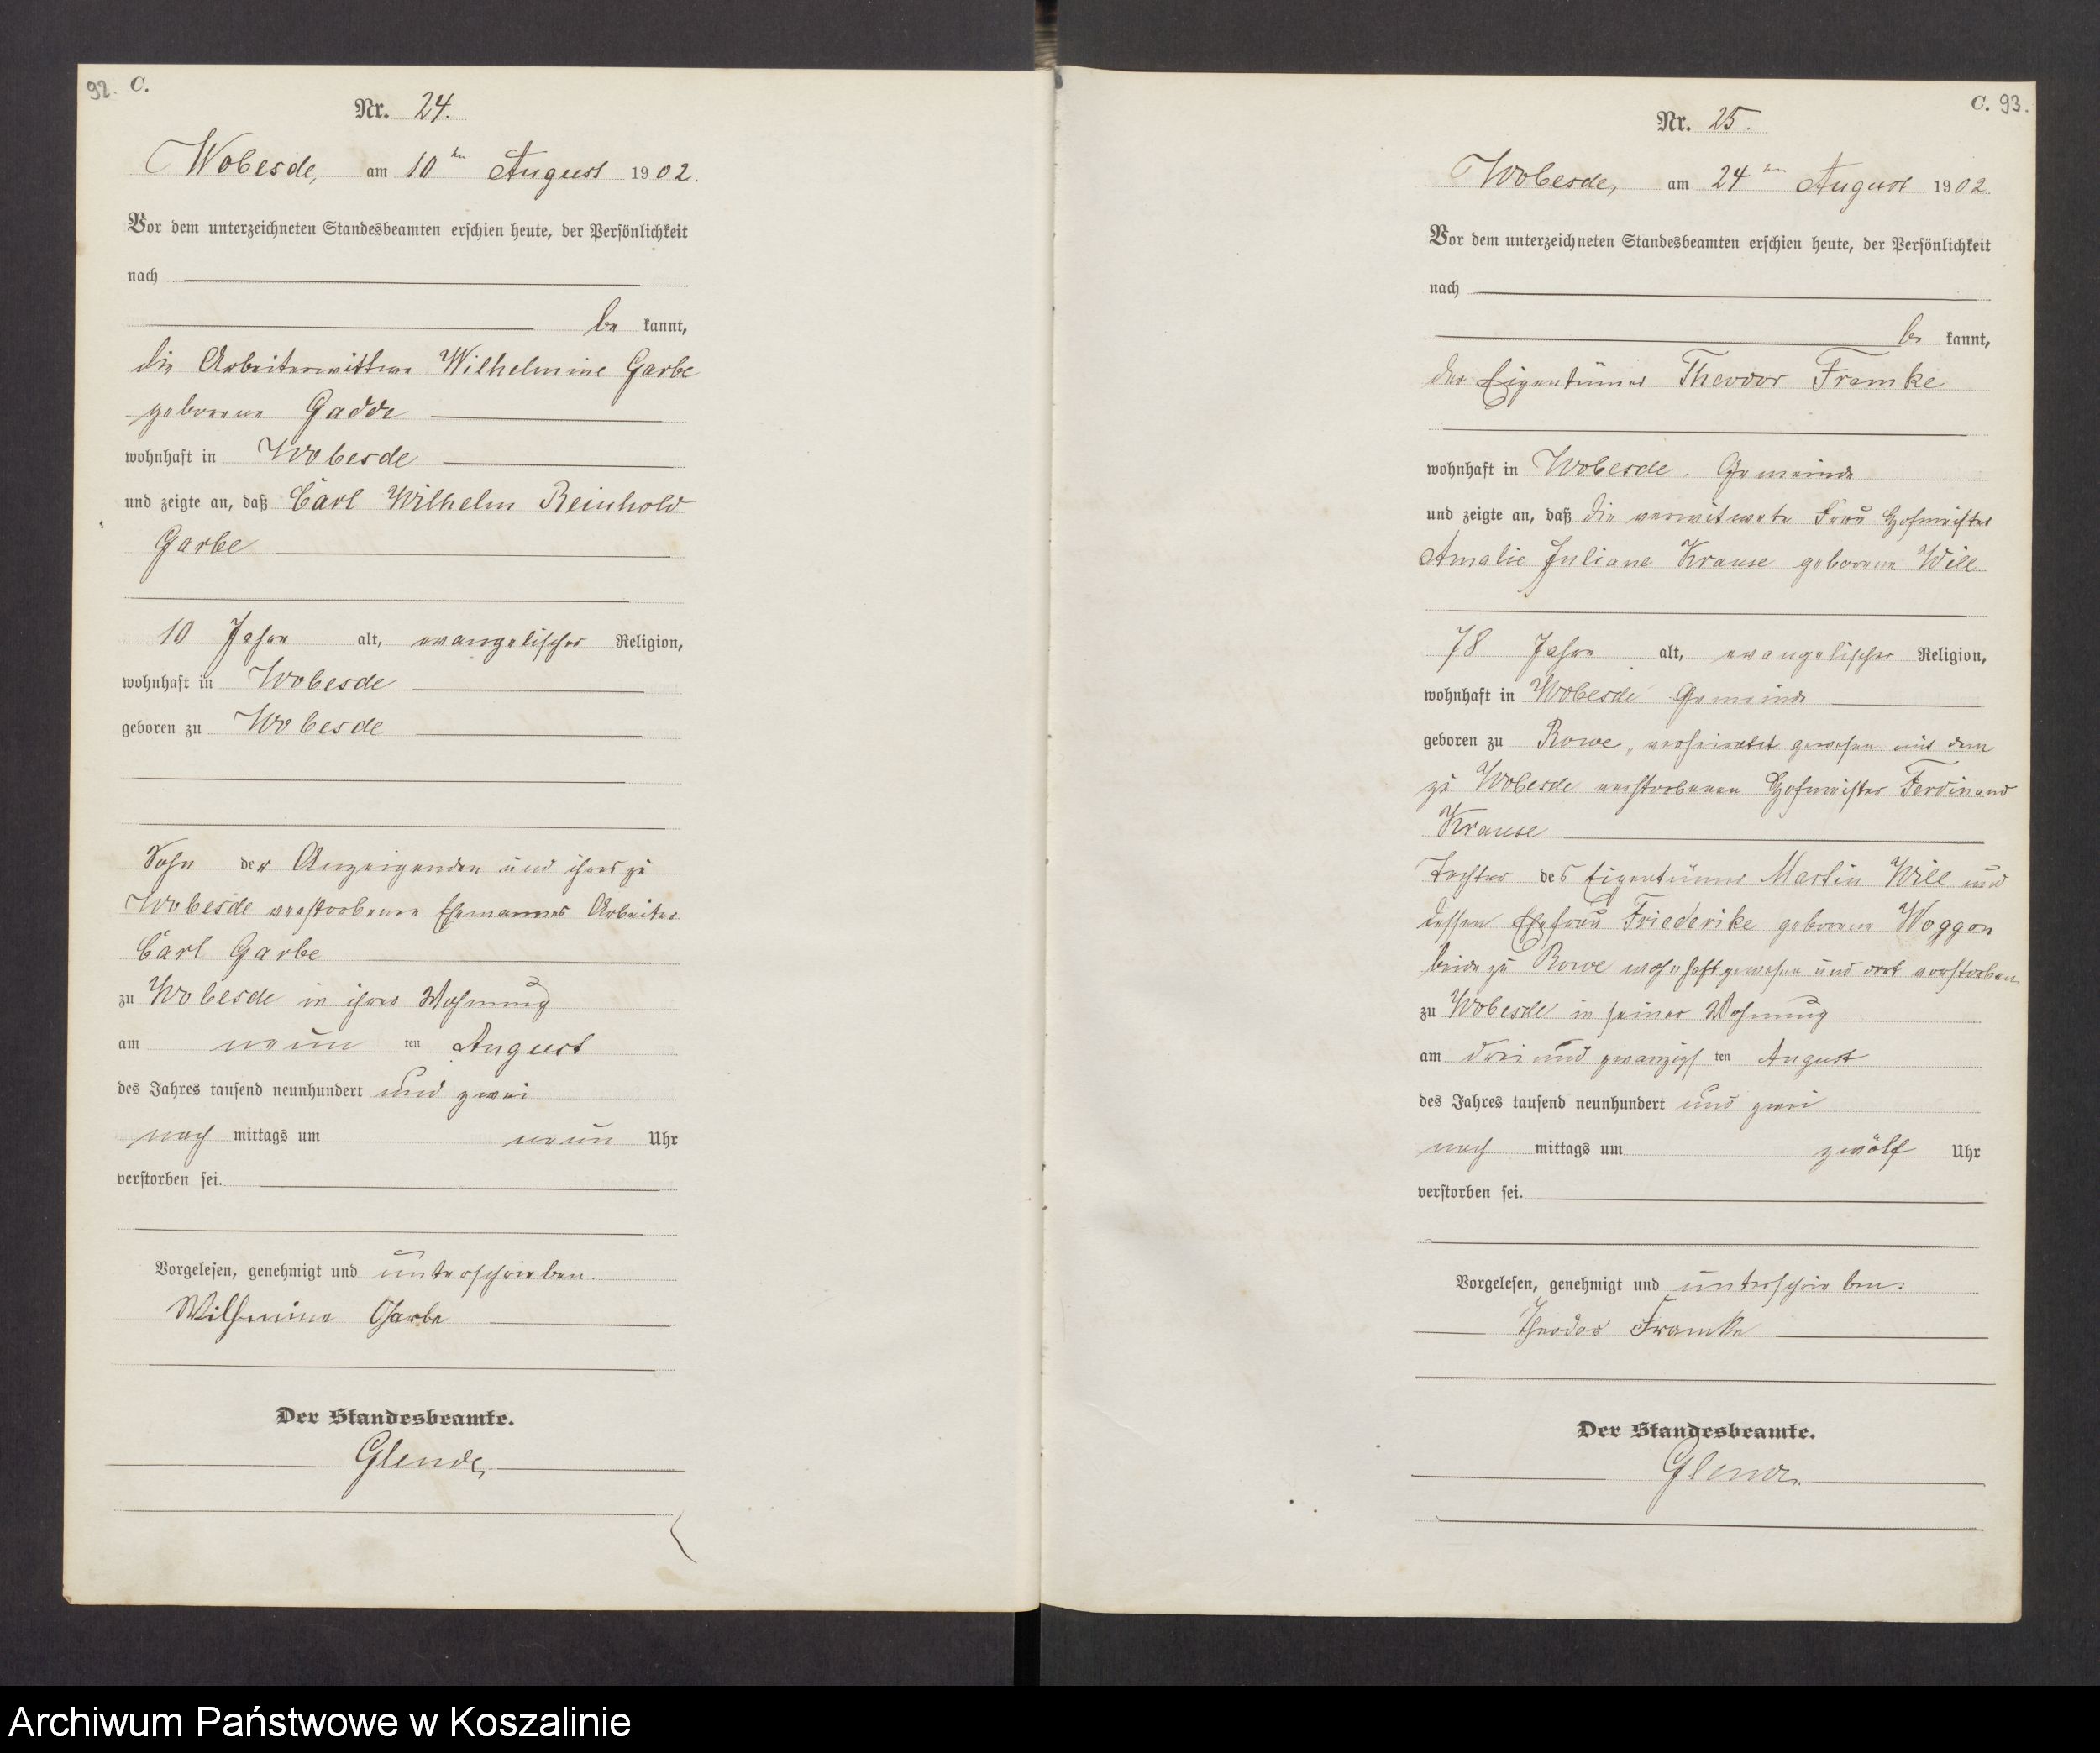 92. C.
Nr. 24.
Wobesde, am 10ten August 1902.
Vor dem unterzeichneten Standesbeamten erschien heute, der Persönlichkeit
nach
be kannt,
die Arbeiterwittwe Wilhelmine Garbe
geborene Gadde
wohnhaft in Wobesde
und zeigte an, daß Carl Wilhelm Reinhold
Garbe
10 Jahre alt, evangelischer Religion,
wohnhaft in Wobesde
geboren zu Wobesde
Sohn der Anzeigenden und ihres zu
Wobesde verstorbenen Ehemannes Arbeiter
Carl Garbe
zu Wobesde in ihrer Wohnung
am neun ten August
des Jahres tausend neunhundert und zwei
nach mittags um neun Uhr
verstorben sei.
Vorgelesen, genehmigt und unterschrieben.
Wilhmine Garbe
Der Standesbeamte.
Glende,
C. 93.
Nr. 25.
Wobesde, am 24ten August 1902.
Vor dem unterzeichneten Standesbeamten erschien heute, der Persönlichkeit
nach
be kannt,
der Eigentümer Theodor Framke
wohnhaft in Wobesde, Gemeinde
und zeigte an, daß die verwitwete Frau Hofmeister
Amalie Juliane Krause geborene Will
78 Jahre alt, evangelischer Religion,
wohnhaft in Wobesde Gemeinde
geboren zu Rowe, verheiratet gewesen mit dem
zu Wobesde verstorbenen Hofmeister Ferdinand
Krause
Tochter des Eigentümer Martin Will und
dessen Ehefrau Friederike geborene Woggon
beide zu Rowe wohnhaft gewesen und dort verstorben
zu Wobesde in seiner Wohnung
am drei und zwanzigs ten August
des Jahres tausend neunhundert und zwei
nach mittags um zwölf Uhr
verstorben sei.
Vorgelesen, genehmigt und unterschrieben.
Theodor Framke
Der Standesbeamte.
Glende.
Archiwum Państwowe w Koszalinie